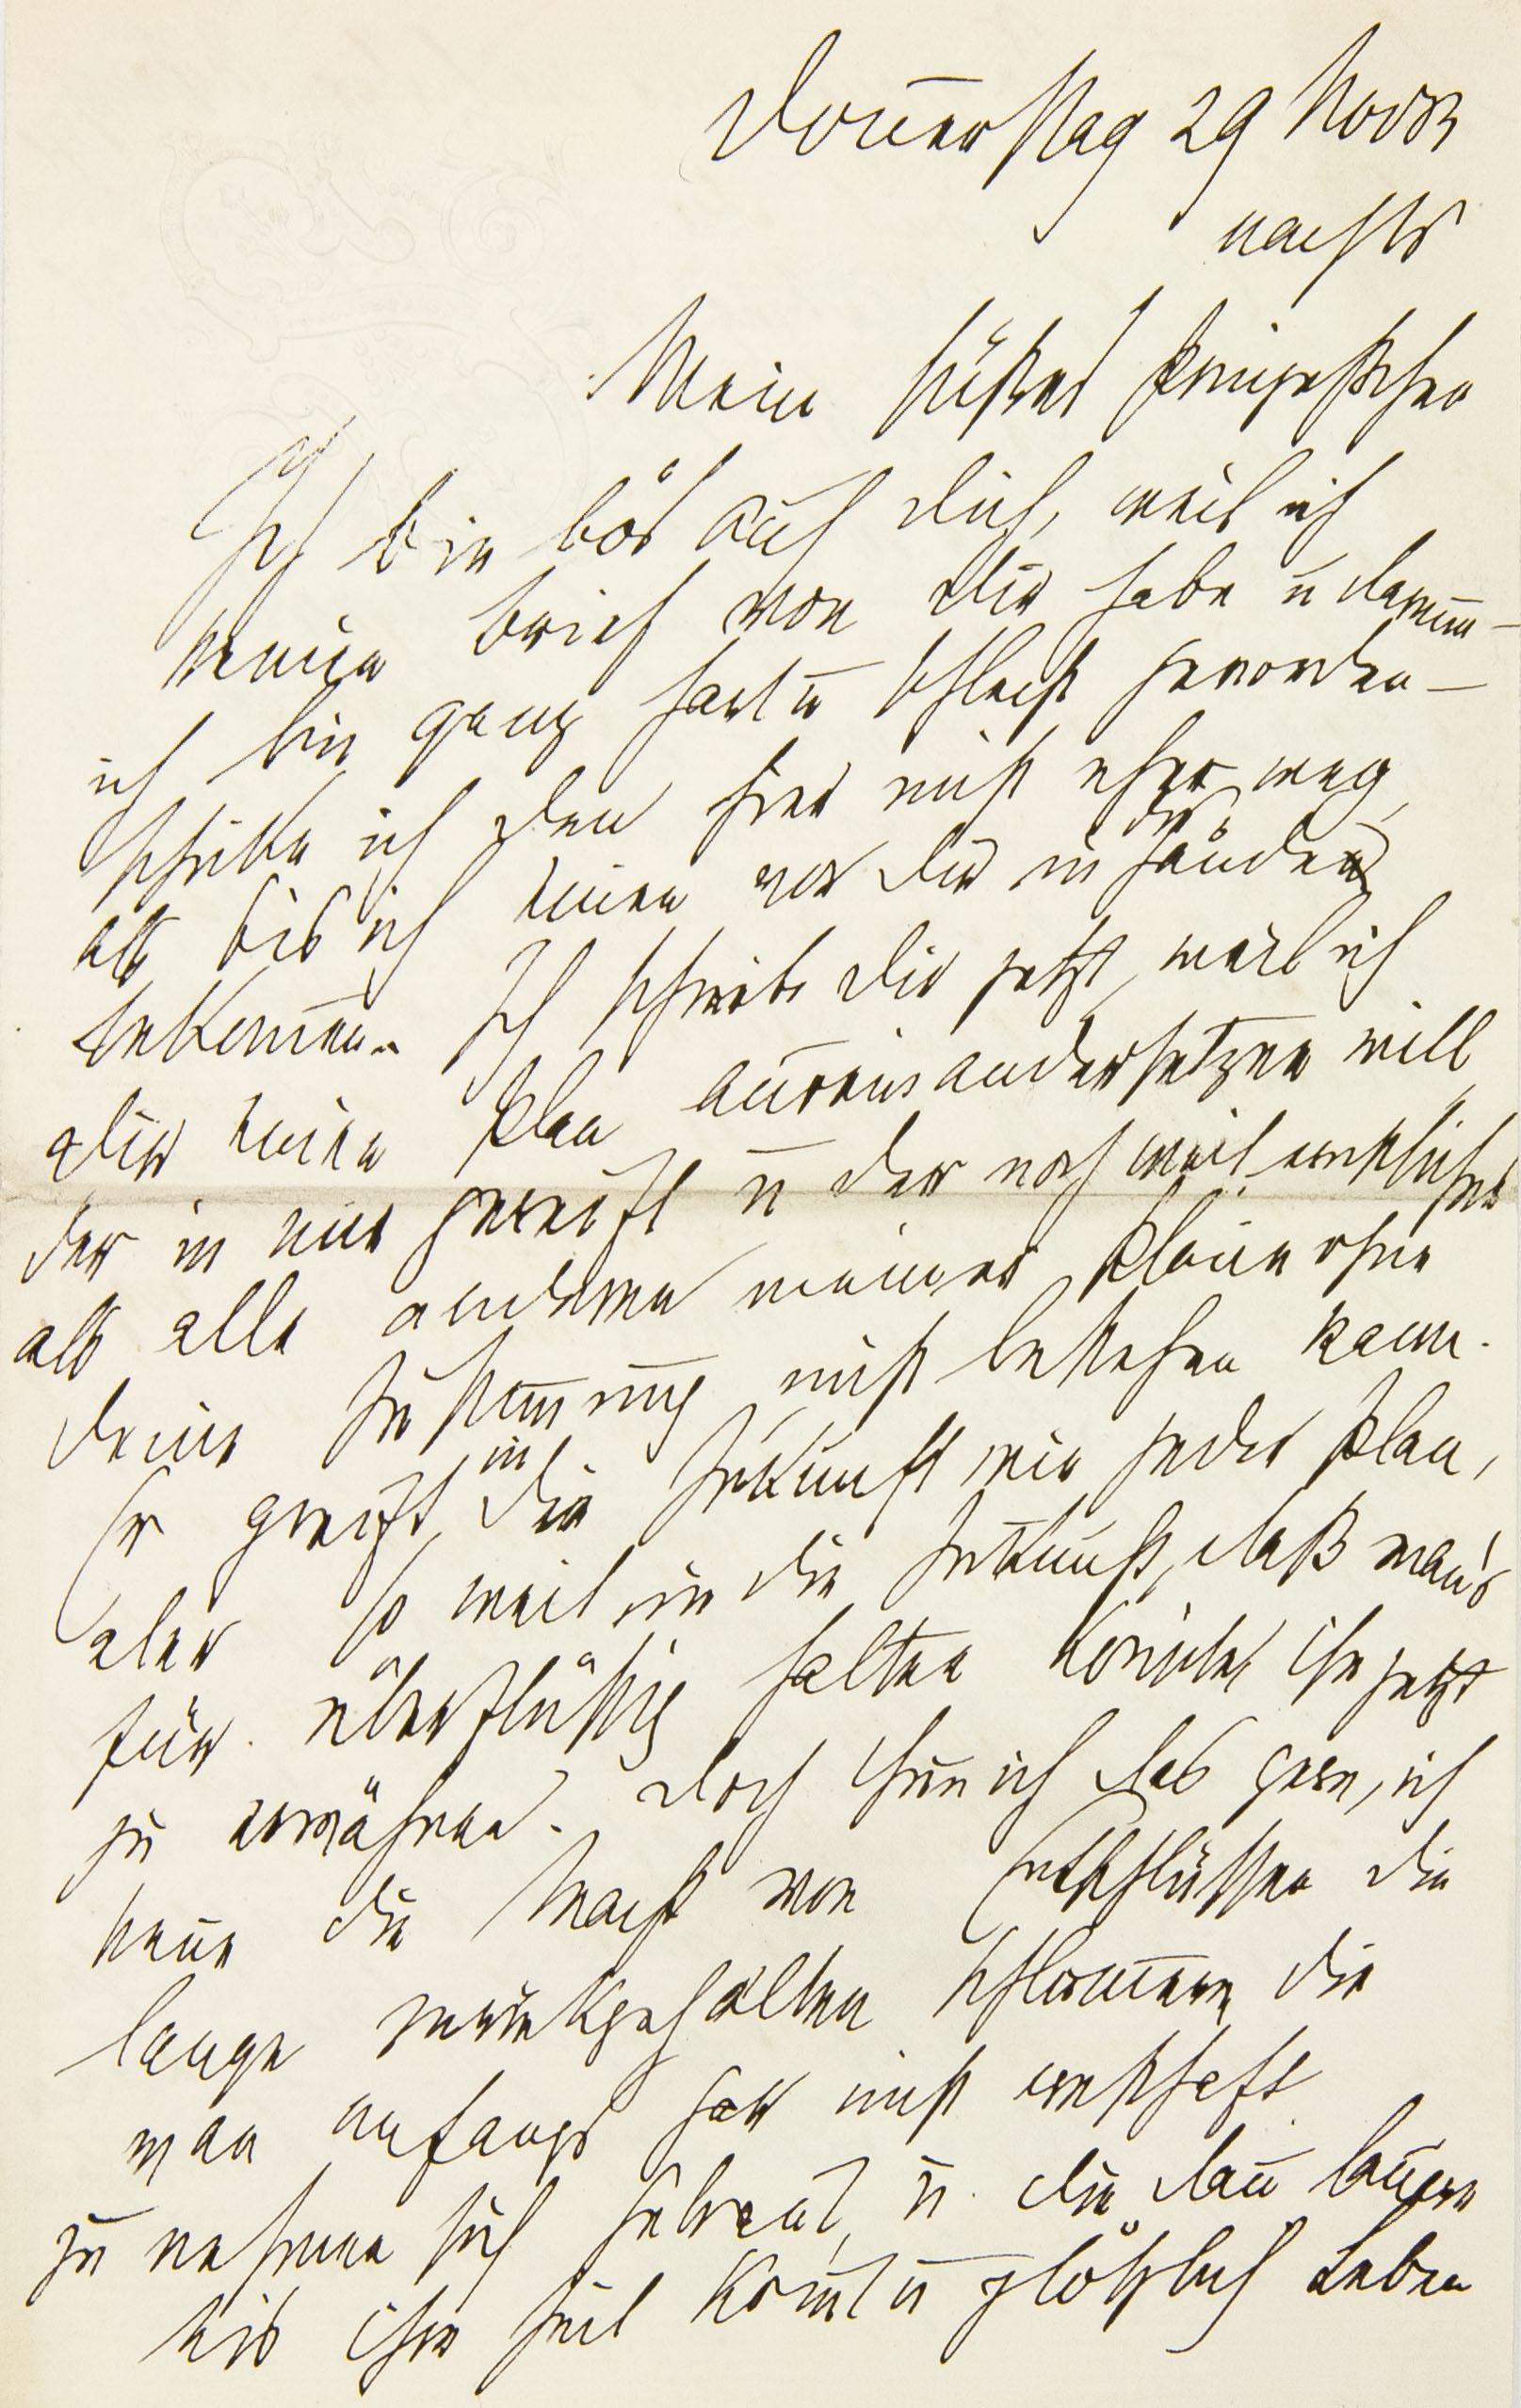 Donerstag 29 Novbr
nachts
Mein süßes Prinzeßchen
Ich bin bös auf dich, weil ich
keinen brief von dir habe u darum –
ich bin ganz hart u schlecht geworden –
schicke ich den hier nicht eher weg,
als bis ich einen von dir in Händen
bekomen. Ich schreibe dir jetzt, weil ich
dir einen Plan auseinandersetzen will,
der in mir gereift u der noch weit ernstlicher
als alle anderen meiner Pläne ohne
deine Zustimung nicht bestehen kann.
Er greift in die Zukunft wie jeder Plan,
aber so weit in die Zukunft, daß man's
für überflüssig halten könnte ihn jetzt
zu erwähnen. Doch thue ich das gern, ich
kene die Macht von Entschlüssen die
lange zurückgehalten schlumern, die
man anfangs gar nicht ernsthaft
zu nehmen sich getraut, u. die dan lauern
bis ihre Zeit komt u plötzlich Leben